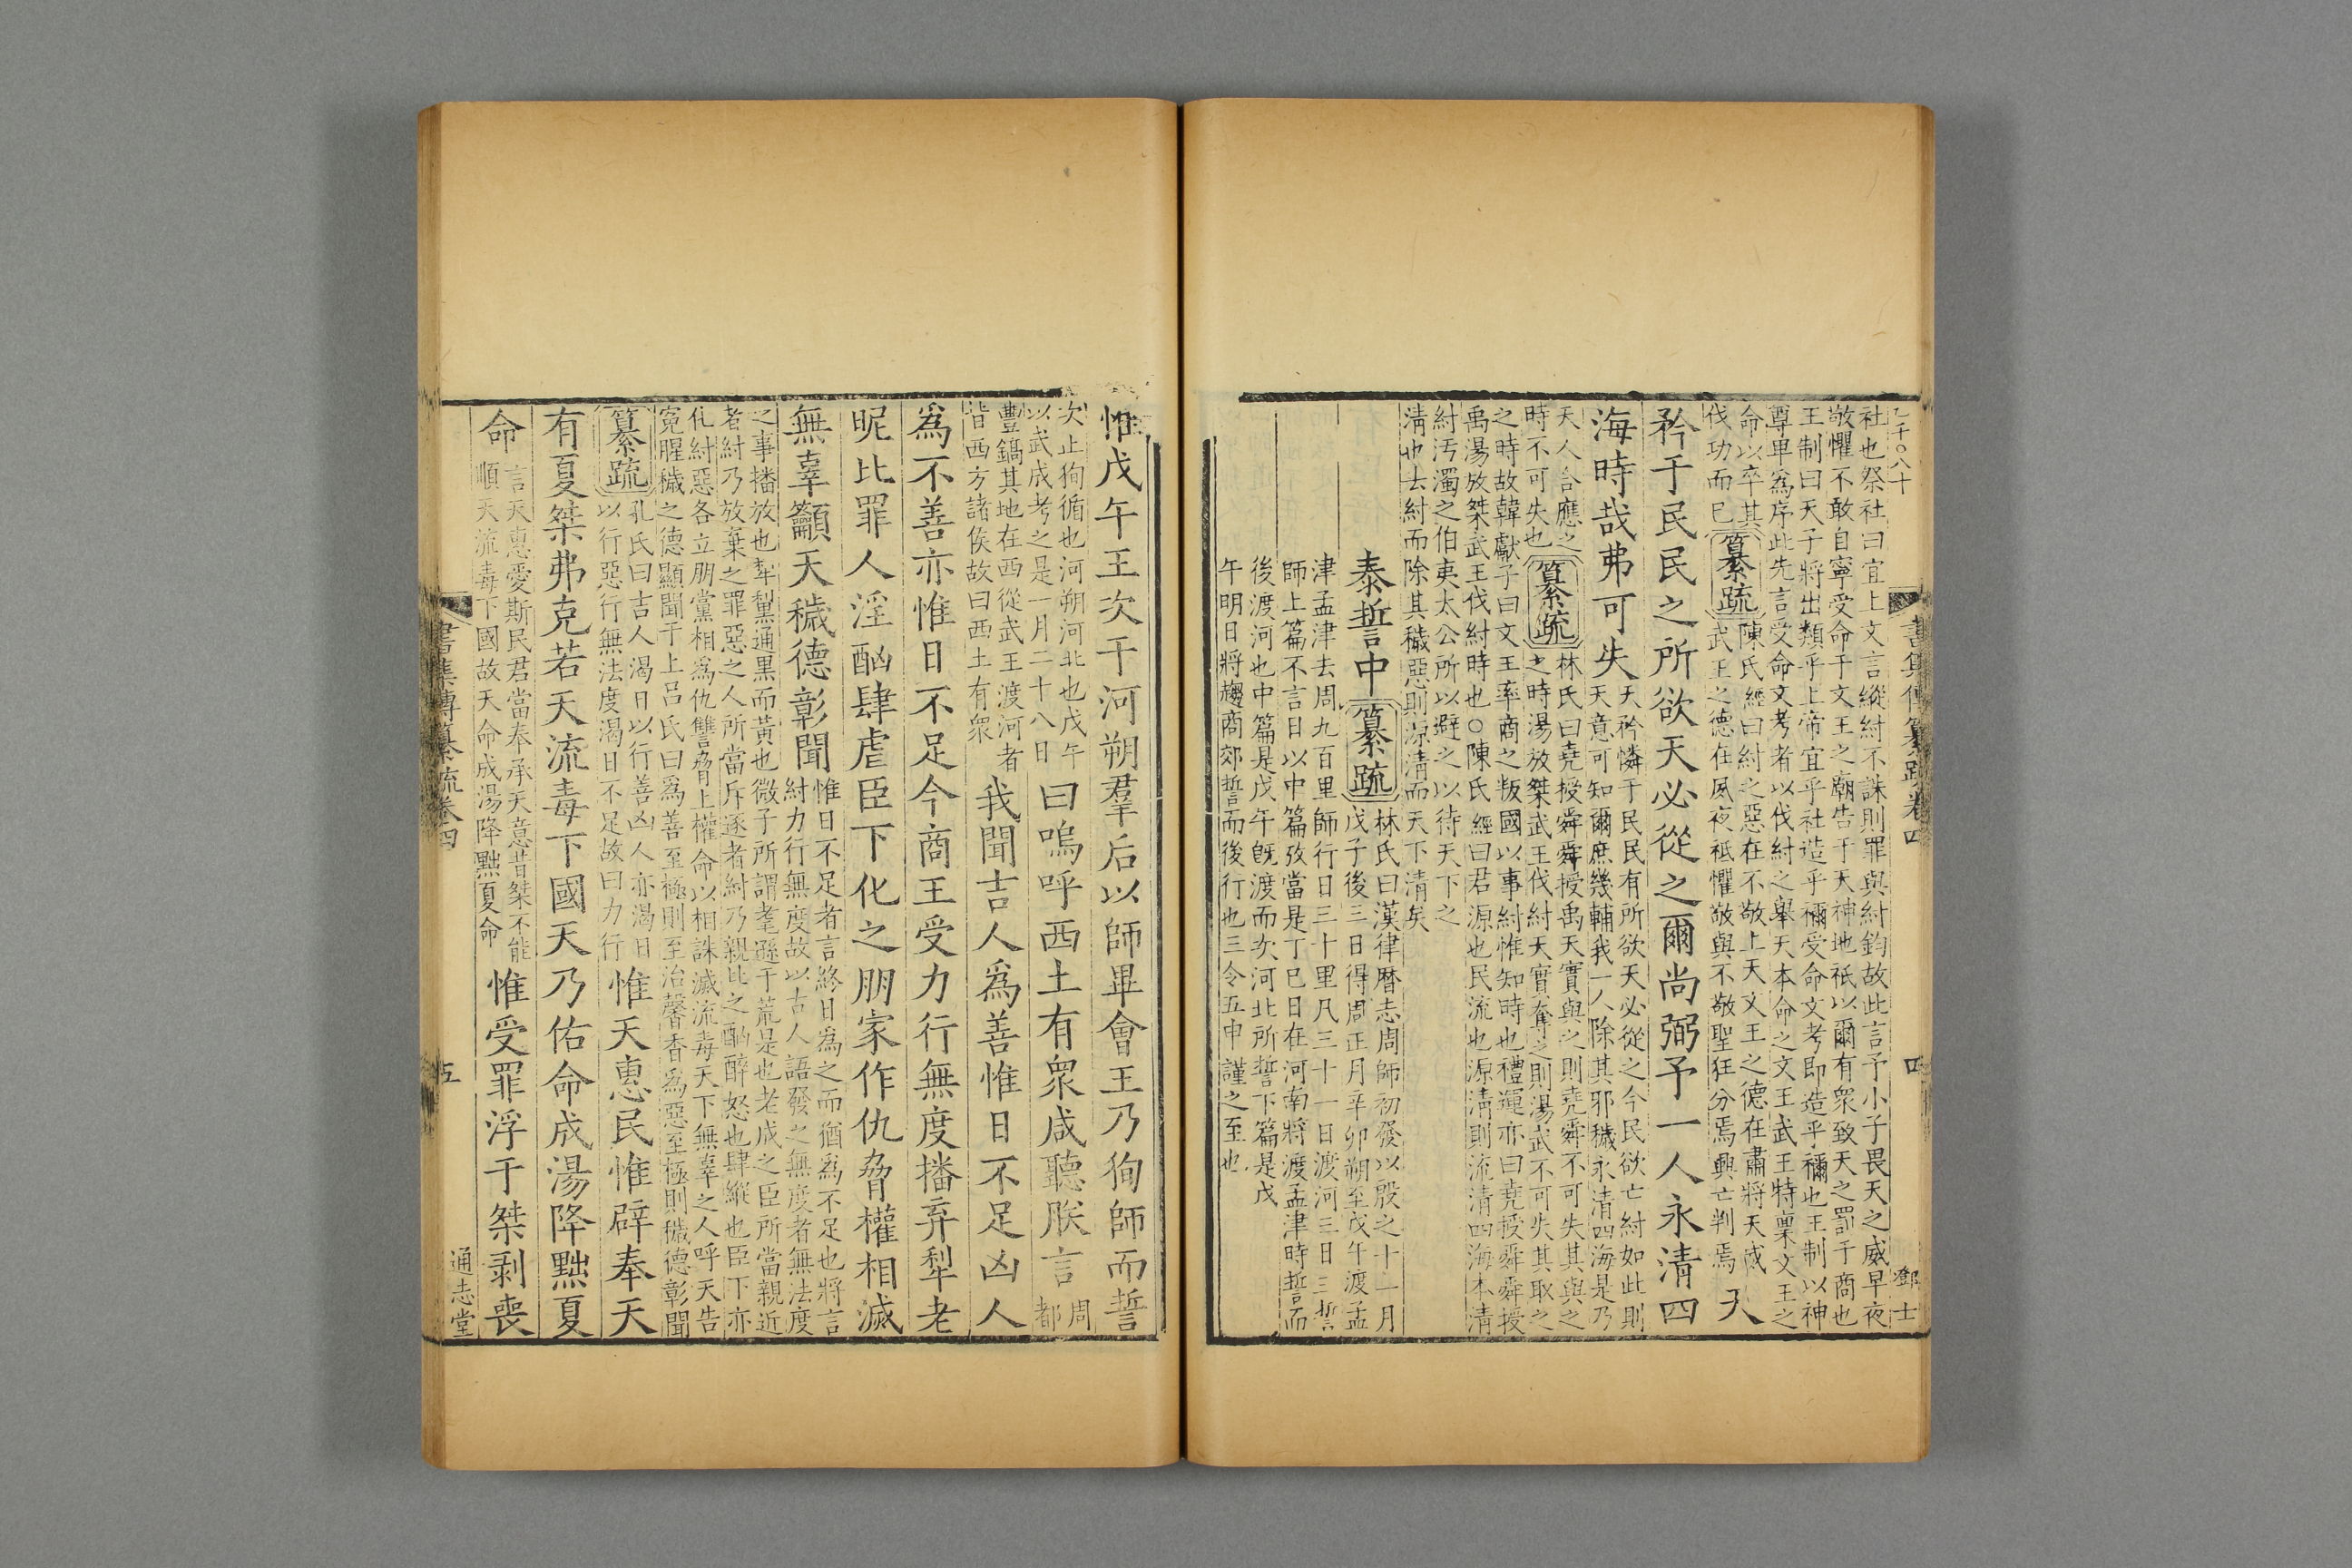 乙千〇八十
書集傳纂疏卷四 四 鄧士
社也祭社曰宜上文言縱紂不誅則罪與紂鈞故此言予小子畏天之威早夜
敬懼不敢自寧受命于文王之廟告于天神地祇以爾有衆致天之罰于商也
王制曰天子將出類乎上帝宜乎社造乎禰受命文考即造乎禰也王制以神
尊卑爲序此先言受命文考者以伐紂之舉天本命之文王武王特稟文王之
命以卒其
伐功而已
纂疏
陳氏經曰紂之惡在不敬上天文王之德在肅將天威
武王之德在夙夜祗懼敬與不敬聖狂分焉興亡判焉
天
矜于民民之所欲天必從之爾尚弼予一人永清四
海時哉弗可失
天矜憐于民民有所欲天必從之今民欲亡紂如此則
天意可知爾庶幾輔我一人除其邪穢永清四海是乃
天人合應之
時不可失也
纂疏
林氏曰堯授舜舜授禹天實與之則堯舜不可失其與之
之時湯放桀武王伐紂天實奪之則湯武不可失其取之
之時故韓獻子曰文王率商之叛國以事紂惟知時也禮運亦曰堯授舜舜授
禹湯放桀武王伐紂時也〇陳氏經曰君源也民流也源清則流清四海本清
紂汚濁之伯夷太公所以避之以待天下之
清也去紂而除其穢惡則源清而天下清矣
泰誓中
纂疏
林氏曰漢律曆志周師初發以殷之十一月
戊子後三日得周正月辛卯朔至戊午渡孟
津孟津去周九百里師行日三十里凡三十一日渡河三日三誓
師上篇不言日以中篇攷當是丁巳日在河南將渡孟津時誓而
後渡河也中篇是戊午旣渡而次河北所誓下篇是戊
午明日將趨商郊誓而後行也三令五申謹之至也
惟戊午王次于河朔羣后以師畢會王乃徇師而誓
次止徇循也河朔河北也戊午
以武成考之是一月二十八日
曰嗚呼西土有衆咸聽朕言
周
都
豐鎬其地在西從武王渡河者
皆西方諸侯故曰西土有衆
我聞吉人爲善惟日不足凶人
爲不善亦惟日不足今商王受力行無度播弃犂老
昵比罪人淫酗肆虐臣下化之朋家作仇脅權相滅
無辜籲天穢德彰聞
惟日不足者言終日爲之而猶爲不足也將言
紂力行無度故以古人語發之無度者無法度
之事播放也犂黧通黑而黃也微子所謂耄遜于荒是也老成之臣所當親近
者紂乃放棄之罪惡之人所當斥逐者紂乃親比之酗醉怒也肆縱也臣下亦
化紂惡各立朋黨相爲仇讐脅上權命以相誅滅流毒天下無辜之人呼天告
冤腥穢之德顯聞于上呂氏曰爲善至極則至治馨香爲惡至極則穢德彰聞
纂疏
孔氏曰吉人渴日以行善凶人亦渴日
以行惡行無法度渴日不足故曰力行
惟天惠民惟辟奉天
有夏桀弗克若天流毒下國天乃佑命成湯降黜夏
命
言天惠愛斯民君當奉承天意昔桀不能
順天流毒下國故天命成湯降黜夏命
惟受罪浮于桀剥喪
書集傳纂疏卷四 五
通志堂